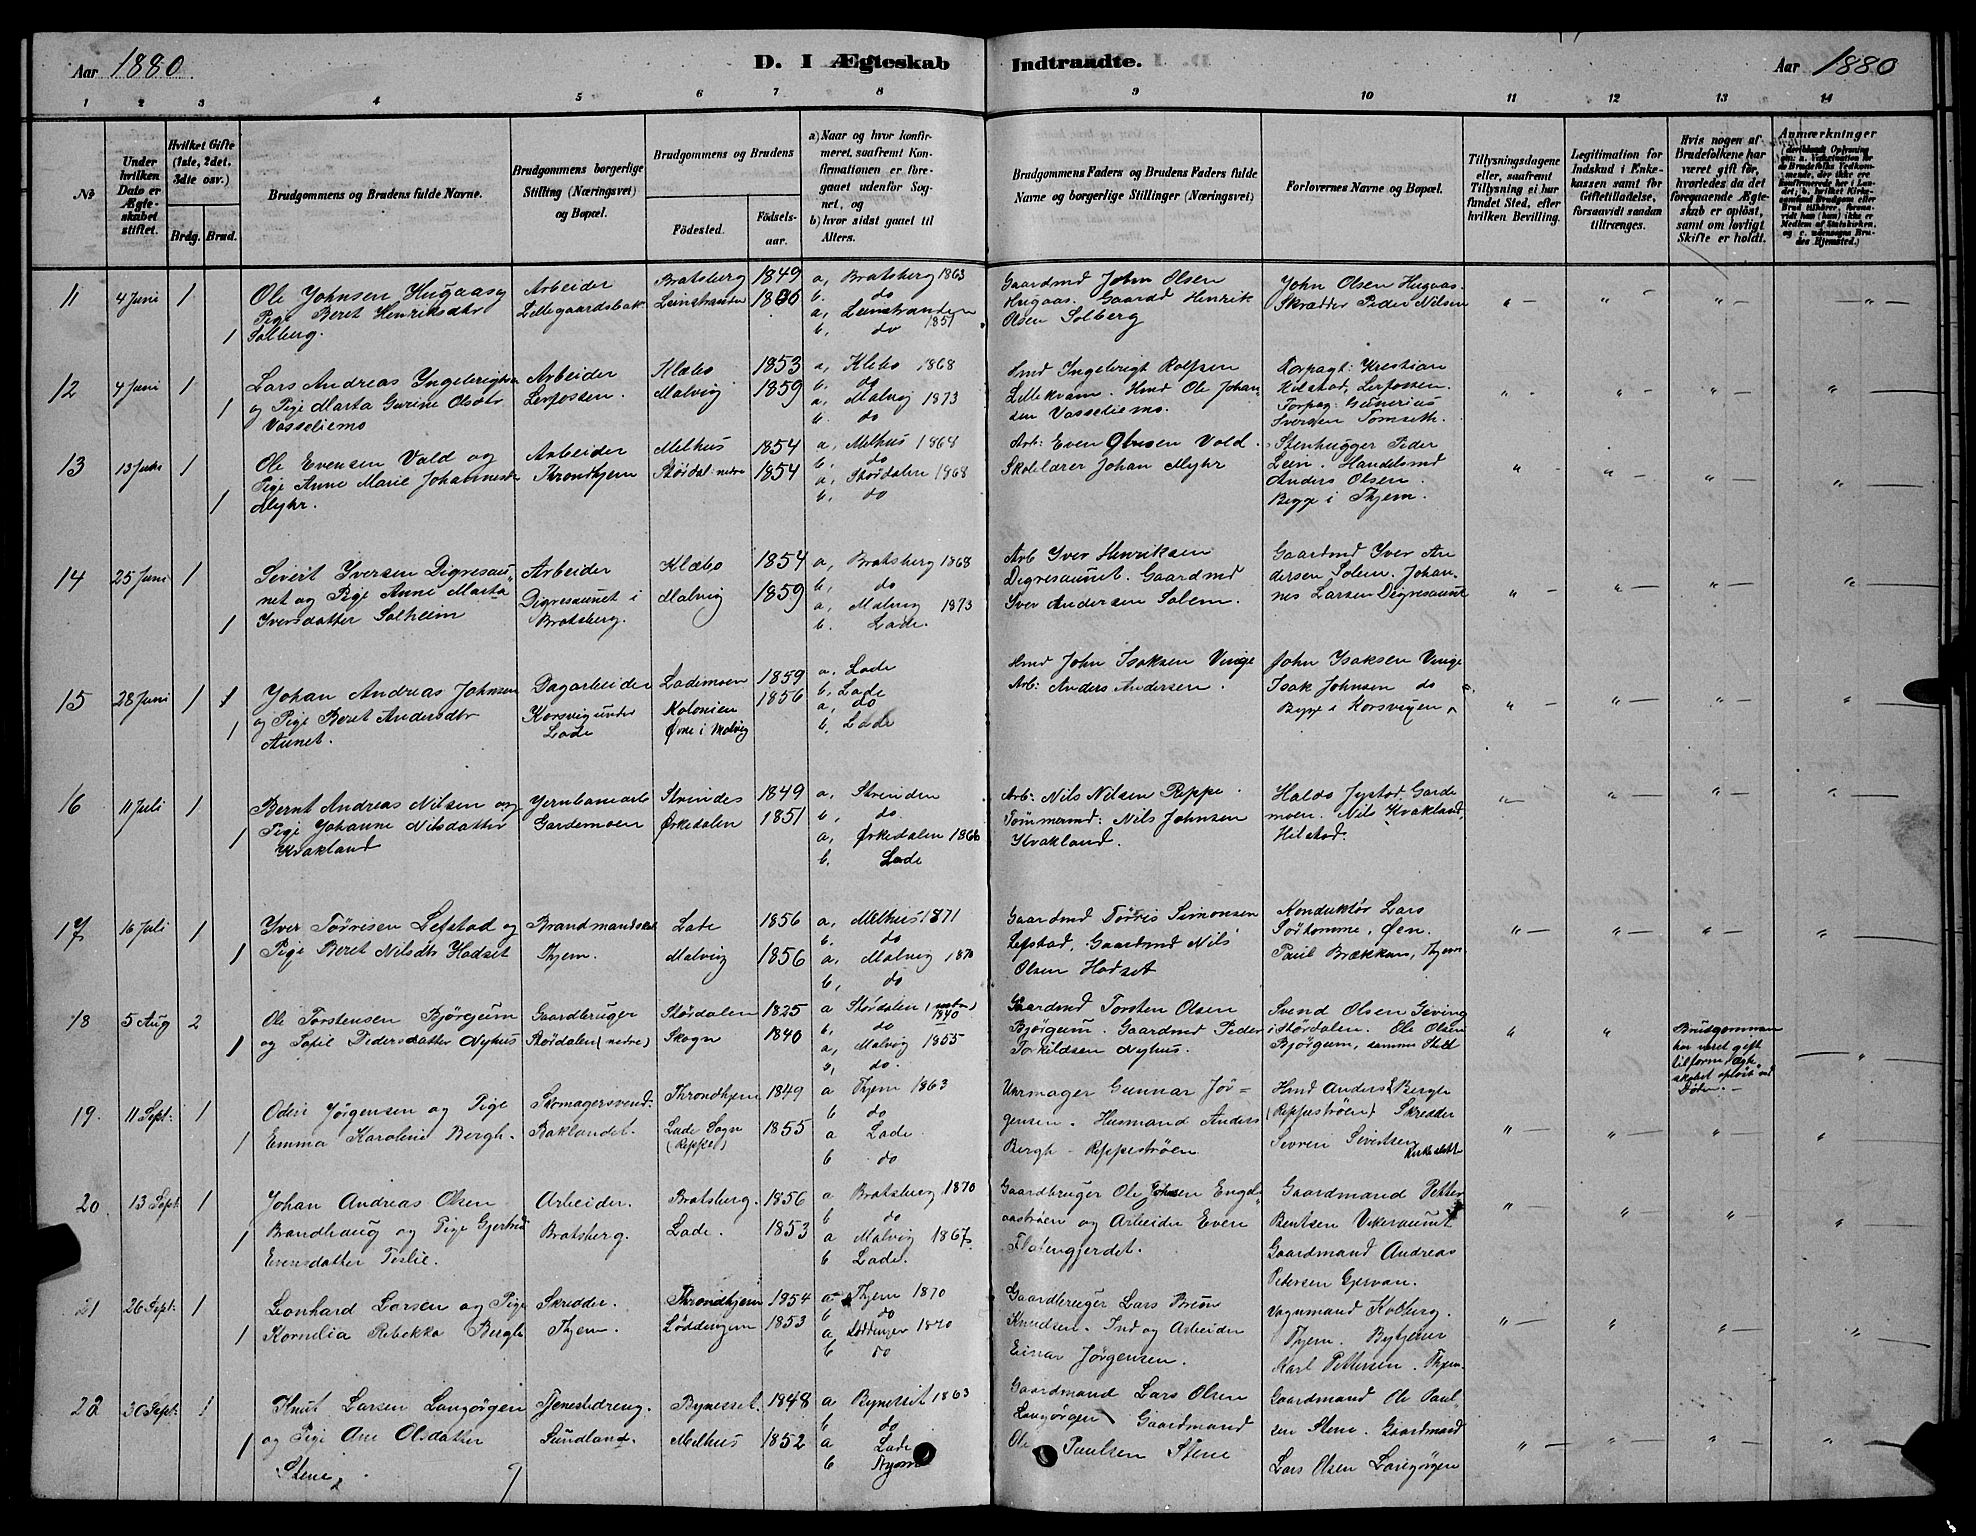 Aar 1880
D. I Ægteskab Indtraadte.
Aar 1880
1 2 3 4 5 6 7 8 9 10 11 12 13 14
№
Under hvilken Dato er Ægteskabet stiftet.
Hvilket Gifte (1ste, 2det, 3dte osv.)
Brdg. Brud.
Brudgommens og Brudens fulde Navne.
Brudgommens borgerlige Stilling (Næringsvei) og Bopæl.
Brudgommens og Brudens
Fødested.
Fødselsaar.
a) Naar og hvor konfirmeret, saafremt Konfirmationen er foregaaet udenfor Sognet, og
b) hvor sidst gaaet til Alters.
Brudgommens Faders og Brudens Faders fulde Navne og borgerlige Stillinger (Næringsvei)
Forlovernes Navne og Bopæl.
Tillysningsdagene eller, saafremt Tillysning ei har fundet Sted, efter hvilken Bevilling.
Legitimation for Indskud i Enkekassen samt for Giftetilladelse, forsaavidt saadan tiltrænges.
Hvis nogen af Brudefolkene har været gift før, hvorledes da det foregaaende Ægteskab er opløst, samt om lovligt Skifte er holdt.
Anmærkninger
11 4 Juni 1 1
Ole Johnsen Hugaas og
Pige Beret Henriksdtr
Solberg.
Arbeider
Lillegaardsbak.
Bratsberg 1849
Leinstranden
a, Bratsberg 1863
b. do
a, Leinstranden
b, do 1851
Gaardmd John Olsen
Hugaas. Gaardd Henrik
Olsen Solberg
John Olsen Hugaas.
Skrædder Peder Nilsen
12 4 Juni 1 1
Lars Andreas Ingebrigtsen
og Pige Marta Gurine Olsdtr
Vasseliemo
Arbeider
Lerfossen.
Klæbo 1853
Malvig 1859
a, Klebo 1868
b. do
a, Malvig 1873
b. do
Hmd Ingebrigt Rolfsen
Lillekvam. Hmd Ole Johan
sen Vasseliemo.
Forpagt: Kristian
Kolstad, Lerfossen.
Forpag: Gunerius
Iversen Tomseth.
13 13 Juni 1 1
Ole Evensen Vold og
Pige Anne Marie Johannesdr
Myhr.
Arbeider
Throndhjem
Melhus 1854
Størdal nedre 1854
a, Melhus 1868
b. do
a, Størdalen 1868
b, do
Arb: Even Olsen Vold.
Skolelærer Johan Myhr
Stenhugger Peder
Lein. Handelsmd
Anders Olsen.
Begge i Thjem.
14 25 Juni 1 1
Sivert Iversen Digresau
net og Pige Anne Marta
Iversdatter Solheim
Arbeider
Digresaunet i
Bratsberg.
Klæbo 1854
Malvig 1859
a, Bratsberg 1868
b, do
a, Malvig 1873
b. Lade.
Arb Iver Henriksen
Digresaunet. Gaardmd
Iver Andersen Solem.
Gaardmd Iver An
dersen Solem. Johan
nes Larsen Digresaunet
15 28 Juni 1 1 1
Johan Andreas Johnsen
og Pige Beret Andersdtr
Aunet.
Dagarbeider
Korsvig under
Lade
Lademoen 1859
Kolonien 1856
Øvre i Malvig
a. Lade
b, Lade
a, do
b, Lade
Hmd John Isaksen Vinge
Arb: Anders Andersen.
John Isaksen Vinge
Isak Johnsen do
Begge i Korsvigen
16 11 Juli 1 1
Bernt Andreas Nilsen og
Pige Johanne Nilsdatter
Kvakland
Jernbanearb
Gardemoen
Strindes 1849
Ørkedalen 1851
a, Strinden
b, do.
a, Ørkedalen 1866
b. Lade
Arb: Nils Nilsen Reppe.
Tømmermd: Nils Johnsen
Kvakland.
Haldo Jystad, Garde
moen. Nils Kvakland,
Hilstad.
17 16 Juli 1 1
Iver Tørrisen Lefstad og
Pige Beret Nilsdtr Hodset
Brandmandska
Thjem.
Lade 1856
Malvig 1856
a, Melhus 1871
b. do
a, Malvig 1870
b, do
Gaardmd Tørris Simonsen
Lefstad, Gaardmd Nils
Olsen Hodset
Konduktør Lars
Sørhomme, Øen.
Paul Brækkan, Thjem
18 5 Aug 2 1
Ole Torstensen Bjørgum
og Sofie Pedersdatter Nyhus
Gaardbruger
Størdalen (nedre)
Størdalen 1825
Skogn 1840
a Størdalen (nedre) 1840
b, do
a, Malvig 1855
b, do.
Gaardmd Torsten Olsen
Bjørgum. Gaardmd Peder
Torkildsen Nyhus.
Svend Olsen Geving
i Størdalen. Ole Olsen
Bjørgum, samme Sted
Brudgommen
har været gift
tilforn. Ægte
skabet opløst ved
Døden.
19 11 Sept: 1 1
Odin Jørgensen og Pige
Emma Karoline Bergh.
Skomagersvend.
Baklandet.
Throndhjem 1849
Lade Sogn 1855
(Reppe)
a Thjem 1863
b do
a Lade.
b do
Uhrmager Gunnar Jør=
gensen. Husmand Anders
Bergh - Reppestrøen
Hmd Anders Bergh
(Reppestrøen) Skredder
Sevren Sivertsen
20 13 Sept 1 1
Johan Andreas Olsen
Brandhaug og Pige Gjertrud
Evensdatter Teslie.
Arbeider.
Bratsberg.
Bratsberg. 1856
Lade. 1853
a Bratsberg 1870
b do
a Malvig 1867.
b Lade.
Gaardbruger Ole Johnsen Engels
aastrøen og Arbeider Even
Flatengjerdet.
Gaardmand Petter
Bentsen Vikeraunet
Gaardmand Andreas
Pedersen Gjervan.
21 26 Sept: 1 1
Leonhard Larsen og Pige
Kornelia Rebekka Bergh
Skredder.
Thjem.
Throndhjem 1854
Løddingen 1853
a Thjem 1870
b do
a Løddingen 1870
b do
Gaardbruger Lars Bruun
Knudsen. Ind og Arbeider
Einar Jørgensen.
Vognmand Kolberg.
Thjem. Bytjener
Karl Pettersen. Thjem
22 30 Sept: 1 1
Knut Larsen Langørgen
og Pige Ane Olsdatter
Stene
Tjenestedreng.
Sundland.
Bynesset. 1848
Melhus 1852
a Bynesset 1863
b do
a Lade
b
Gaardmand Lars Olsen
Langørgen Gaardmand
Ole Paulsen Stene
Gaardmand Ole Paul
sen Stene. Gaardmand
Lars Olsen Langørgen